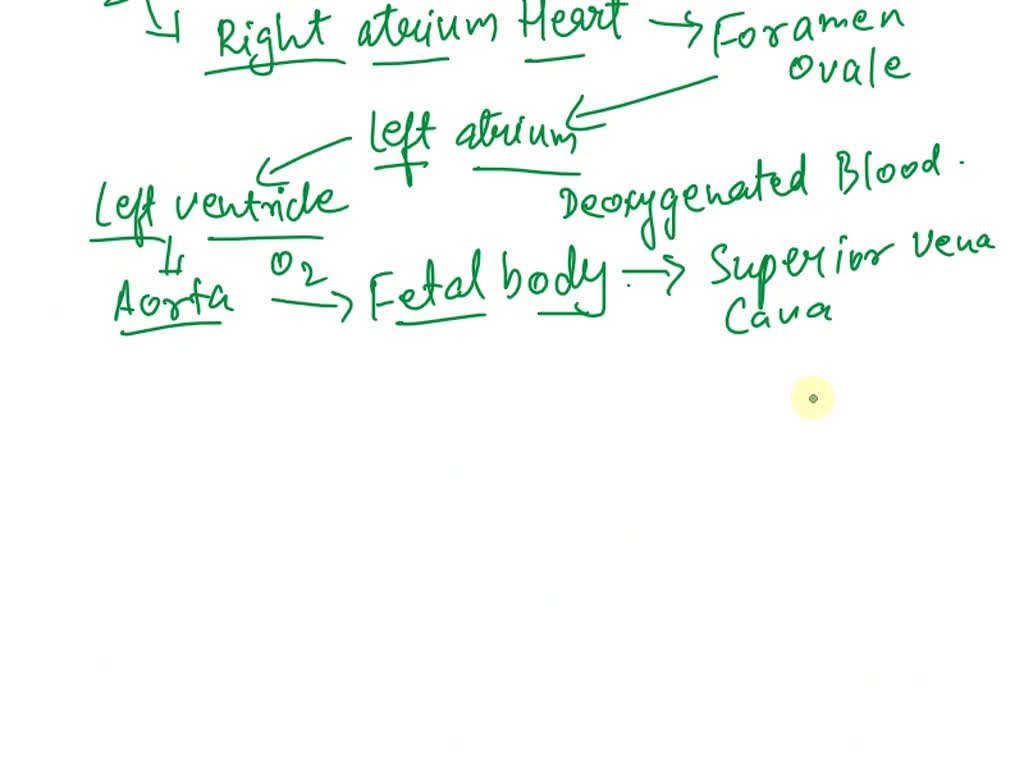 Right atrium Heart → Foramen
Ovale
Left atrium
Left ventricle
Deoxygenated Blood.
Aorta O2 → Fetal body → Superior vena
Cava